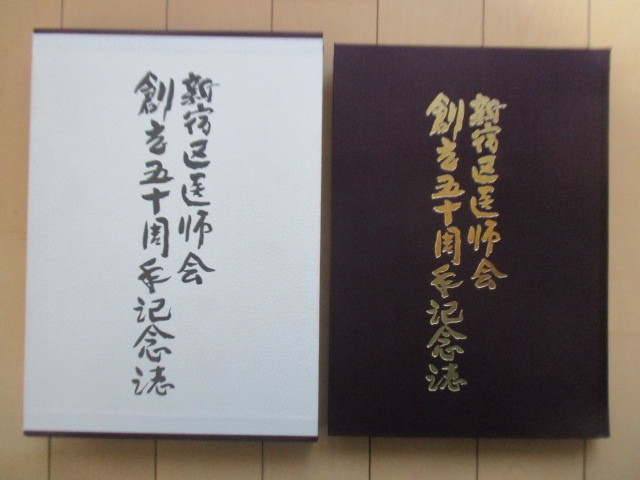 新宿区医師会
創立五十周年記念誌
新宿区医師会
創立五十周年記念誌